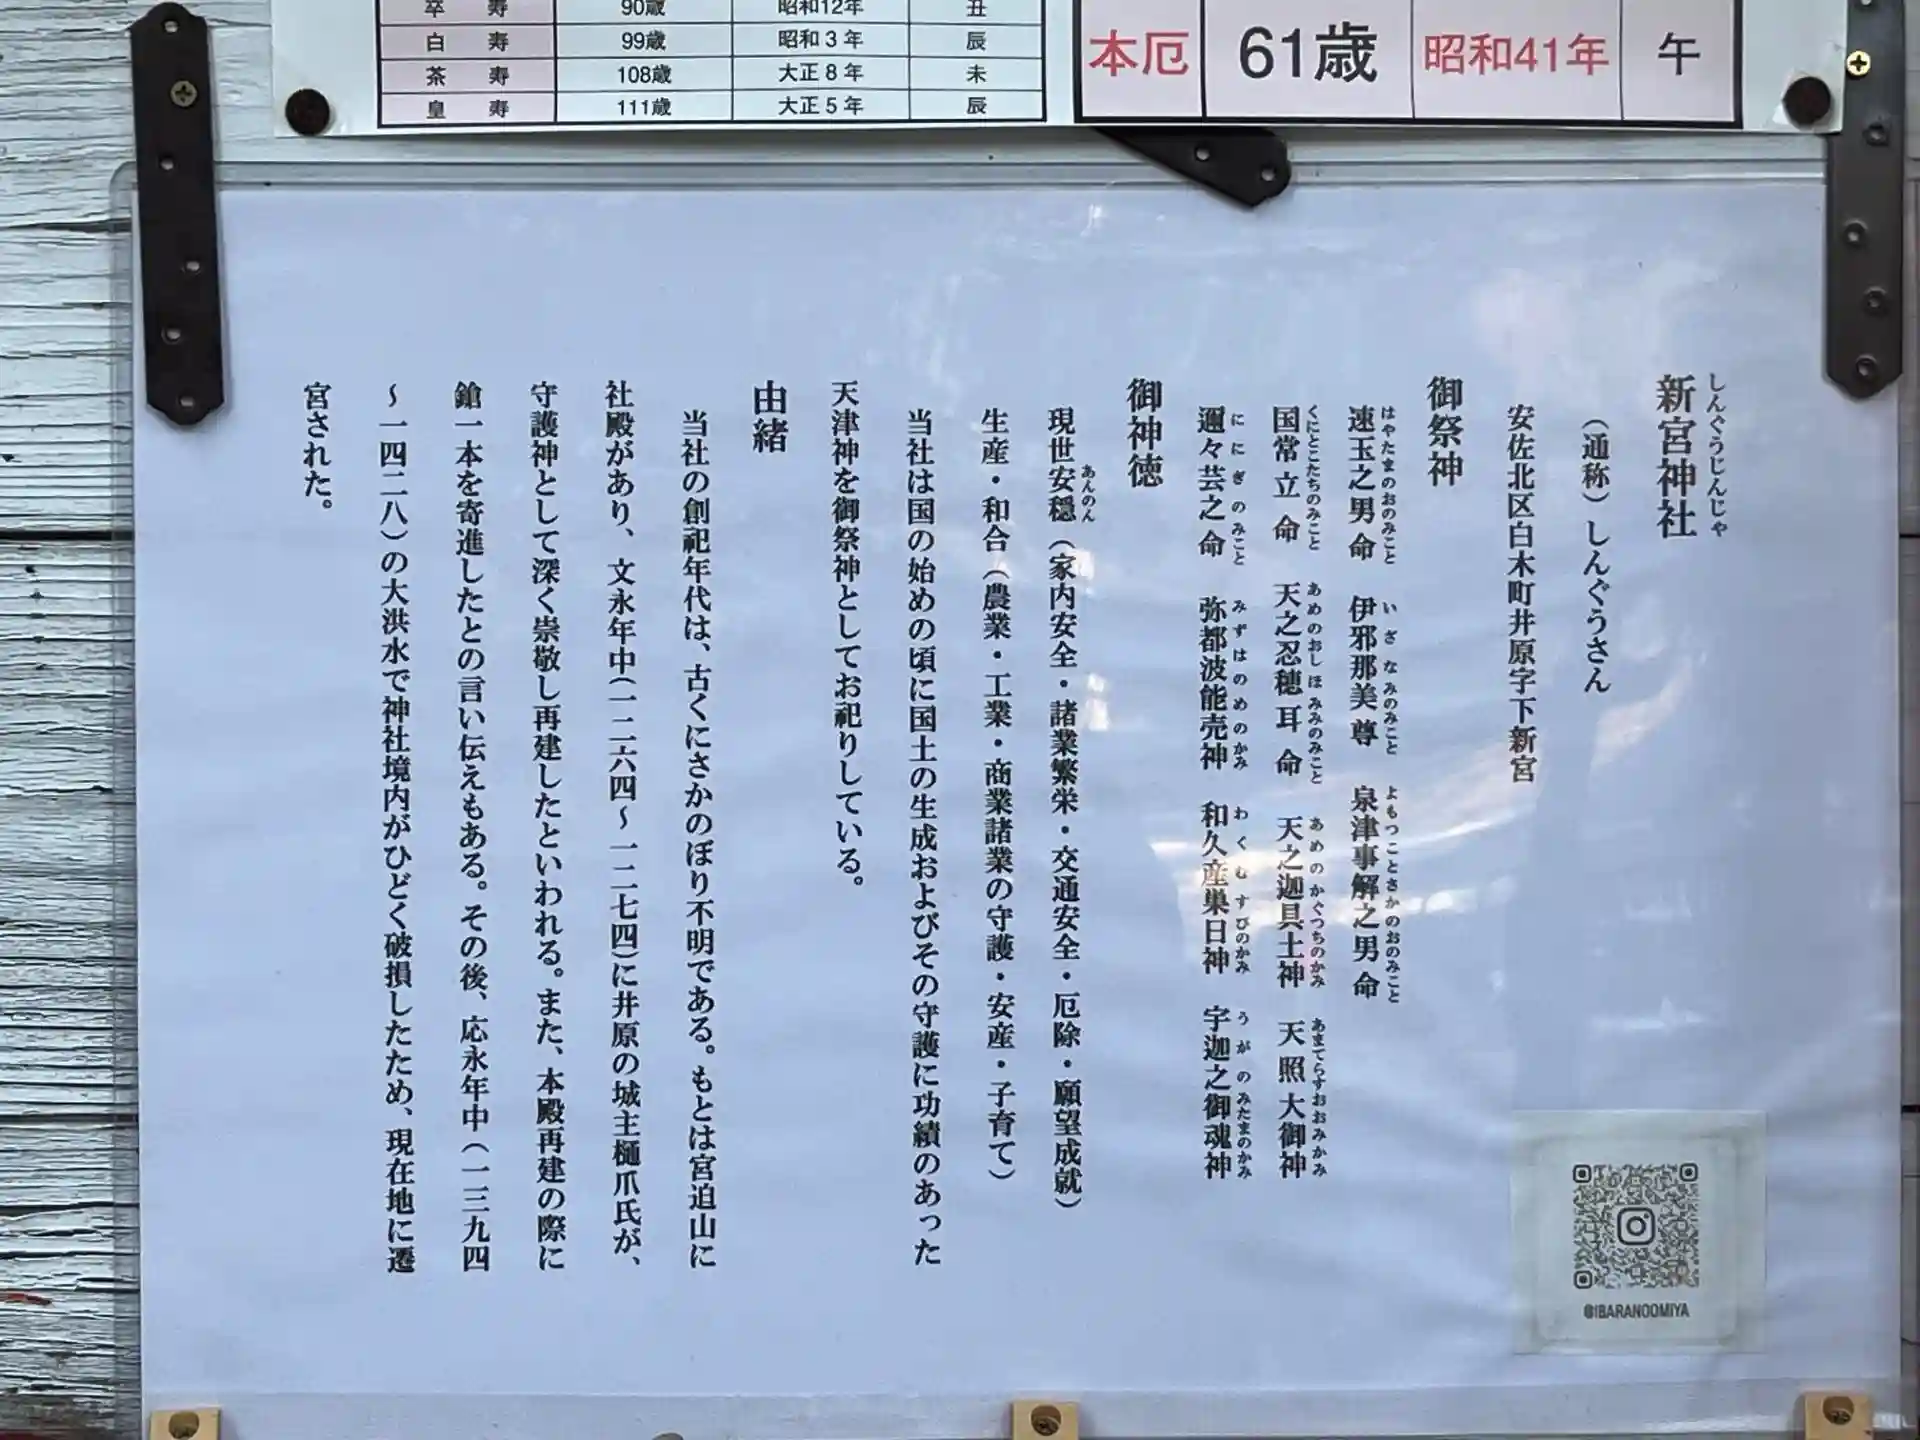 卒寿 90歳 昭和12年 丑
白寿 99歳 昭和3年 辰
茶寿 108歳 大正8年 未
皇寿 111歳 大正5年 辰
本厄 61歳 昭和41年 午
しんぐうじんじゃ
新宮神社
(通称)しんぐうさん
安佐北区白木町井原字下新宮
御祭神
はやたまのおのみこと いざなみのみこと よもつことさかのおのみこと
速玉之男命 伊邪那美尊 泉津事解之男命
くにとこたちのみこと あめのおしほみみのみこと あめのかぐつちのかみ あまてらすおおみかみ
国常立命 天之忍穂耳命 天之迦具土神 天照大御神
ににぎのみこと みずはのめのかみ わくむすびのかみ うがのみたまのかみ
邇々芸之命 弥都波能売神 和久産巣日神 宇迦之御魂神
御神徳
あんのん
現世安穏(家内安全・諸業繁栄・交通安全・厄除・願望成就)
生産・和合(農業・工業・商業諸業の守護・安産・子育て)
当社は国の始めの頃に国土の生成およびその守護に功績のあった
天津神を御祭神としてお祀りしている。
由緒
当社の創祀年代は、古くにさかのぼり不明である。もとは宮迫山に
社殿があり、文永年中(一二六四〜一二七四)に井原の城主樋爪氏が、
守護神として深く崇敬し再建したといわれる。また、本殿再建の際に
鎗一本を寄進したとの言い伝えもある。その後、応永年中(一三九四
〜一四二八)の大洪水で神社境内がひどく破損したため、現在地に遷
宮された。
@IBARANOOMIYA